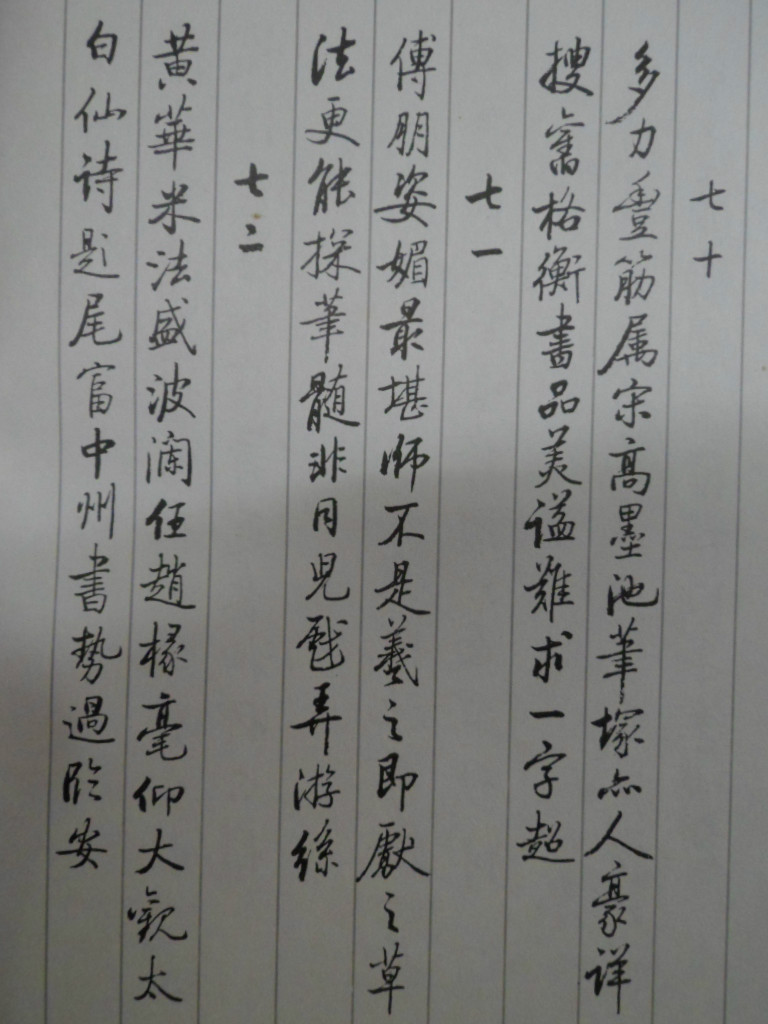 七十
多力豐筋属宋高墨池筆塚亦人豪详
搜舊格衡書品美谥難求一字超
七一
傅朋姿媚最堪师不是羲之即獻之草
法更能探筆髓非同児戲弄游絲
七二
黄華米法盛波澜任趙椽毫仰大觀太
白仙诗题尾富中州書勢過臨安